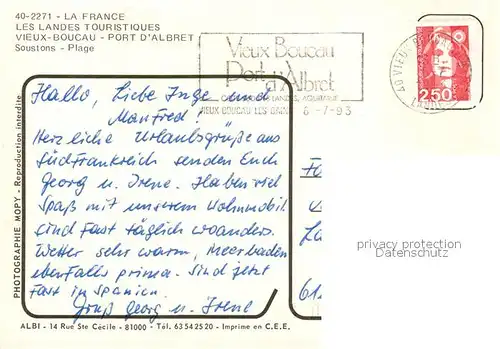 40-2271 - LA FRANCE
LES LANDES TOURISTIQUES
VIEUX-BOUCAU - PORT D'ALBRET
Soustons - Plage
Vieux Boucau
Port d'Albret
VIEUX BOUCAU LES BAINS 6-7-93
2,50
Hallo, Liebe Inge und
Manfred!
Herzliche Urlaubsgrüße aus
Südfrankreich senden Euch
Georg u. Irene. Haben viel
Spaß mit unserem Wohnmobil
sind fast täglich woanders.
Wetter sehr warm, Meerbaden
ebenfalls prima. Sind jetzt
fast in Spanien.
Gruß Georg u. Irene
PHOTOGRAPHIE MOPY - Reproduction interdite
privacy protection
Datenschutz
61
ALBI - 14 Rue Ste Cécile - 81000 - Tél. 63 54 25 20 - Imprimé en C.E.E.